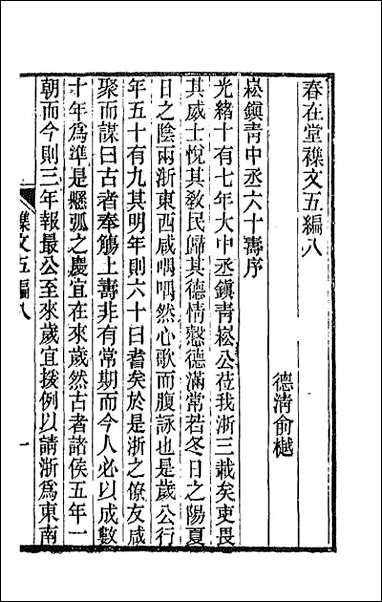 春在堂襍文五編八
德清俞樾
崧鎭靑中丞六十壽序
光緒十有七年大中丞鎭靑崧公莅我浙三載矣吏畏
其威士悅其敎民歸其德情慤德滿常若冬日之陽夏
日之陰兩浙東西咸喁喁然心歌而腹詠也是歲公行
年五十有九其明年則六十曰耆矣於是浙之僚友咸
聚而謀曰古者奉觴上壽非有常期而今人必以成數
十年爲準是懸弧之慶宜在來歲然古者諸侯五年一
朝而今則三年報最公至來歲宜援例以請浙爲東南
襍文五編八
一